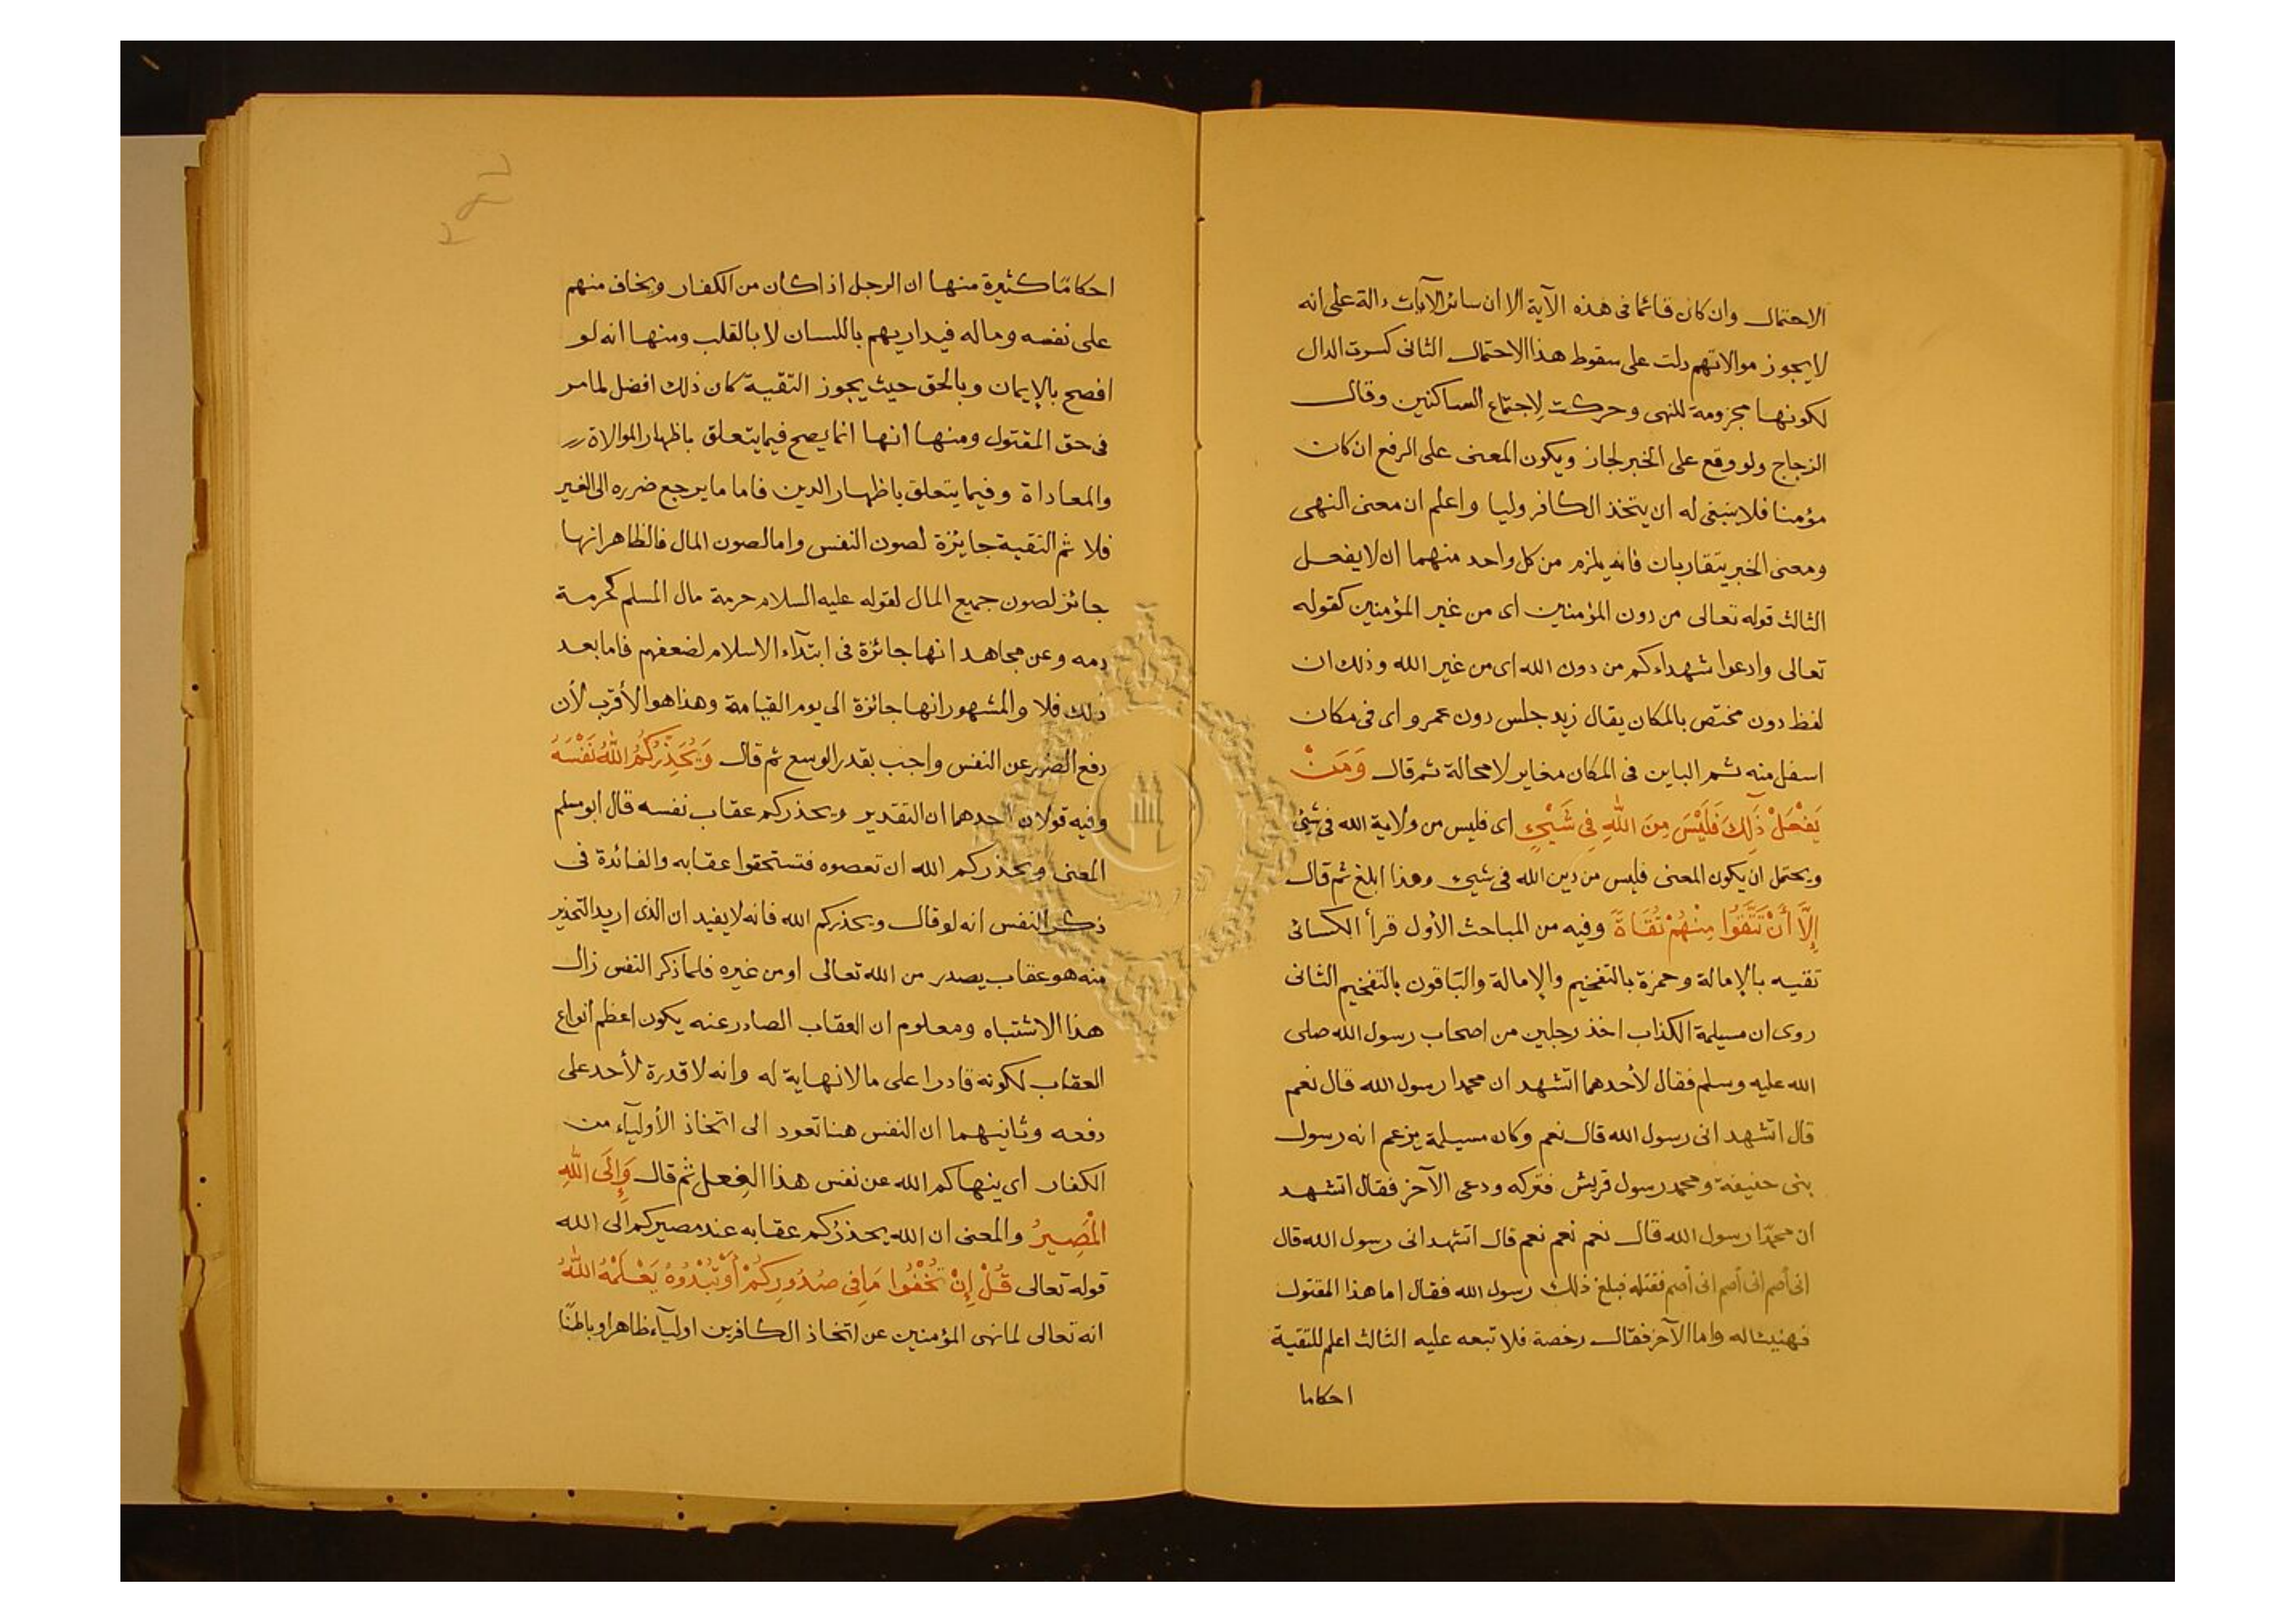 الاحتمال وان كان قائما فى هذه الآية الا ان سائر الآيات دالة على انه
لا يجوز موالاتهم دلت على سقوط هذا الاحتمال الثانى كسرت الدال
لكونها مجزومة للنهى وحركت لإجتماع الساكنين وقال
الزجاج ولو وقع على الخبر لجاز ويكون المعنى على الرفع ان كان
مؤمنا فلا ينبغى له ان يتخذ الكافر وليا واعلم ان معنى النهى
ومعنى الخبر يتقاربان فانه يلزم من كل واحد منهما ان لا يفعل
الثالث قوله تعالى من دون المؤمنين اى من غير المؤمنين كقوله
تعالى وادعوا شهداءكم من دون الله اى من غير الله وذلك ان
لفظ دون مختص بالمكان يقال زيد جلس دون عمرو اى فى مكان
اسفل منه ثم الباين فى المكان مغاير لا محالة ثم قال وَمَنْ
يَفْعَلْ ذَٰلِكَ فَلَيْسَ مِنَ اللّٰهِ فِي شَيْءٍ اى فليس من ولاية الله فى شئ
ويحتمل ان يكون المعنى فليس من دين الله فى شيء وهذا ابلغ ثم قال
إِلَّا أَنْ تَتَّقُوا مِنْهُمْ تُقَاةً وفيه من المباحث الأول قرأ الكسائى
تقيه بالإمالة وحمزة بالتفخيم والإمالة والباقون بالتفخيم الثانى
روى ان مسيلمة الكذاب اخذ رجلين من اصحاب رسول الله صلى
الله عليه وسلم فقال لأحدهما اتشهد ان محمدا رسول الله قال نعم
قال اتشهد انى رسول الله قال نعم وكان مسيلمة يزعم انه رسول
بنى حنيفة ومحمد رسول قريش فتركه ودعى الآخر فقال اتشهد
ان محمدّا رسول الله قال نعم نعم نعم قال اتشهد انى رسول الله قال
انى أصم انى أصم انى أصم فقتله فبلغ ذلك رسول الله فقال اما هذا المقتول
فهنيئا له واما الآخر فقال رخصة فلا تبعه عليه الثالث اعلم للتقية
احكاما
احكامًا كثيرة منها ان الرجل اذا كان من الكفار ويخاف منهم
على نفسه وماله فيداريهم باللسان لا بالقلب ومنها انه لو
افصح بالإيمان وبالحق حيث يجوز التقية كان ذلك افضل لما مر
فى حق المقتول ومنها انها انما يصح فيما يتعلق باظهار الموالاة
والمعاداة وفيما يتعلق باظهار الدين فاما ما يرجع ضرره الى الغير
فلا ثم التقية جايزة لصون النفس واما لصون المال فالظاهر انها
جائز لصون جميع المال لقوله عليه السلام حرمة مال المسلم كحرمة
دمه وعن مجاهد انها جائزة فى ابتدآء الاسلام لضعفهم فاما بعد
ذلك فلا والمشهور انها جائزة الى يوم القيامة وهذا هو الأقرب لأن
دفع الضرر عن النفس واجب بقدر الوسع ثم قال وَيُحَذِّرُكُمُ اللّٰهُ نَفْسَهُ
وفيه قولان احدهما ان التقدير ويحذركم عقاب نفسه قال ابو مسلم
المعنى ويحذركم الله ان تعصوه فتستحقوا عقابه والفائدة فى
ذكر النفس انه لو قال ويحذركم الله فانه لا يفيد ان الذى اريد التحذير
منه هو عقاب يصدر من الله تعالى او من غيره فلما ذكر النفس زال
هذا الاشتباه ومعلوم ان العقاب الصادر عنه يكون اعظم أنواع
العقاب لكونه قادرا على ما لا نهاية له وانه لا قدرة لأحد على
دفعه وثانيهما ان النفس هنا تعود الى اتخاذ الأوليآء من
الكفار اى ينهاكم الله عن نفس هذا الفعل ثم قال وَإِلَى اللّٰهِ
الْمَصِيرُ والمعنى ان الله يحذركم عقابه عند مصيركم الى الله
قوله تعالى قُلْ إِنْ تُخْفُوا مَا فِي صُدُورِكُمْ أَوْ تُبْدُوهُ يَعْلَمْهُ اللّٰهُ
انه تعالى لما نهى المؤمنين عن اتخاذ الكافرين اوليآء ظاهرا وباطنًا